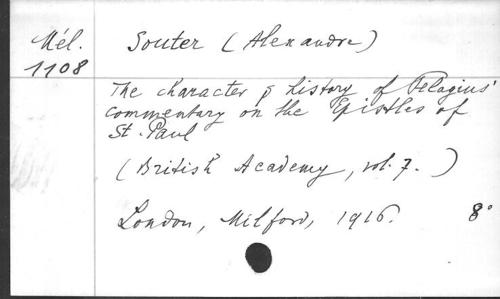 Mél. 1108
Souter (Alexandre)
The character & history of Pelagius'
commentary on the Epistles of
St. Paul
(British Academy, vol. 7.)
London, Milford, 1916. 8°